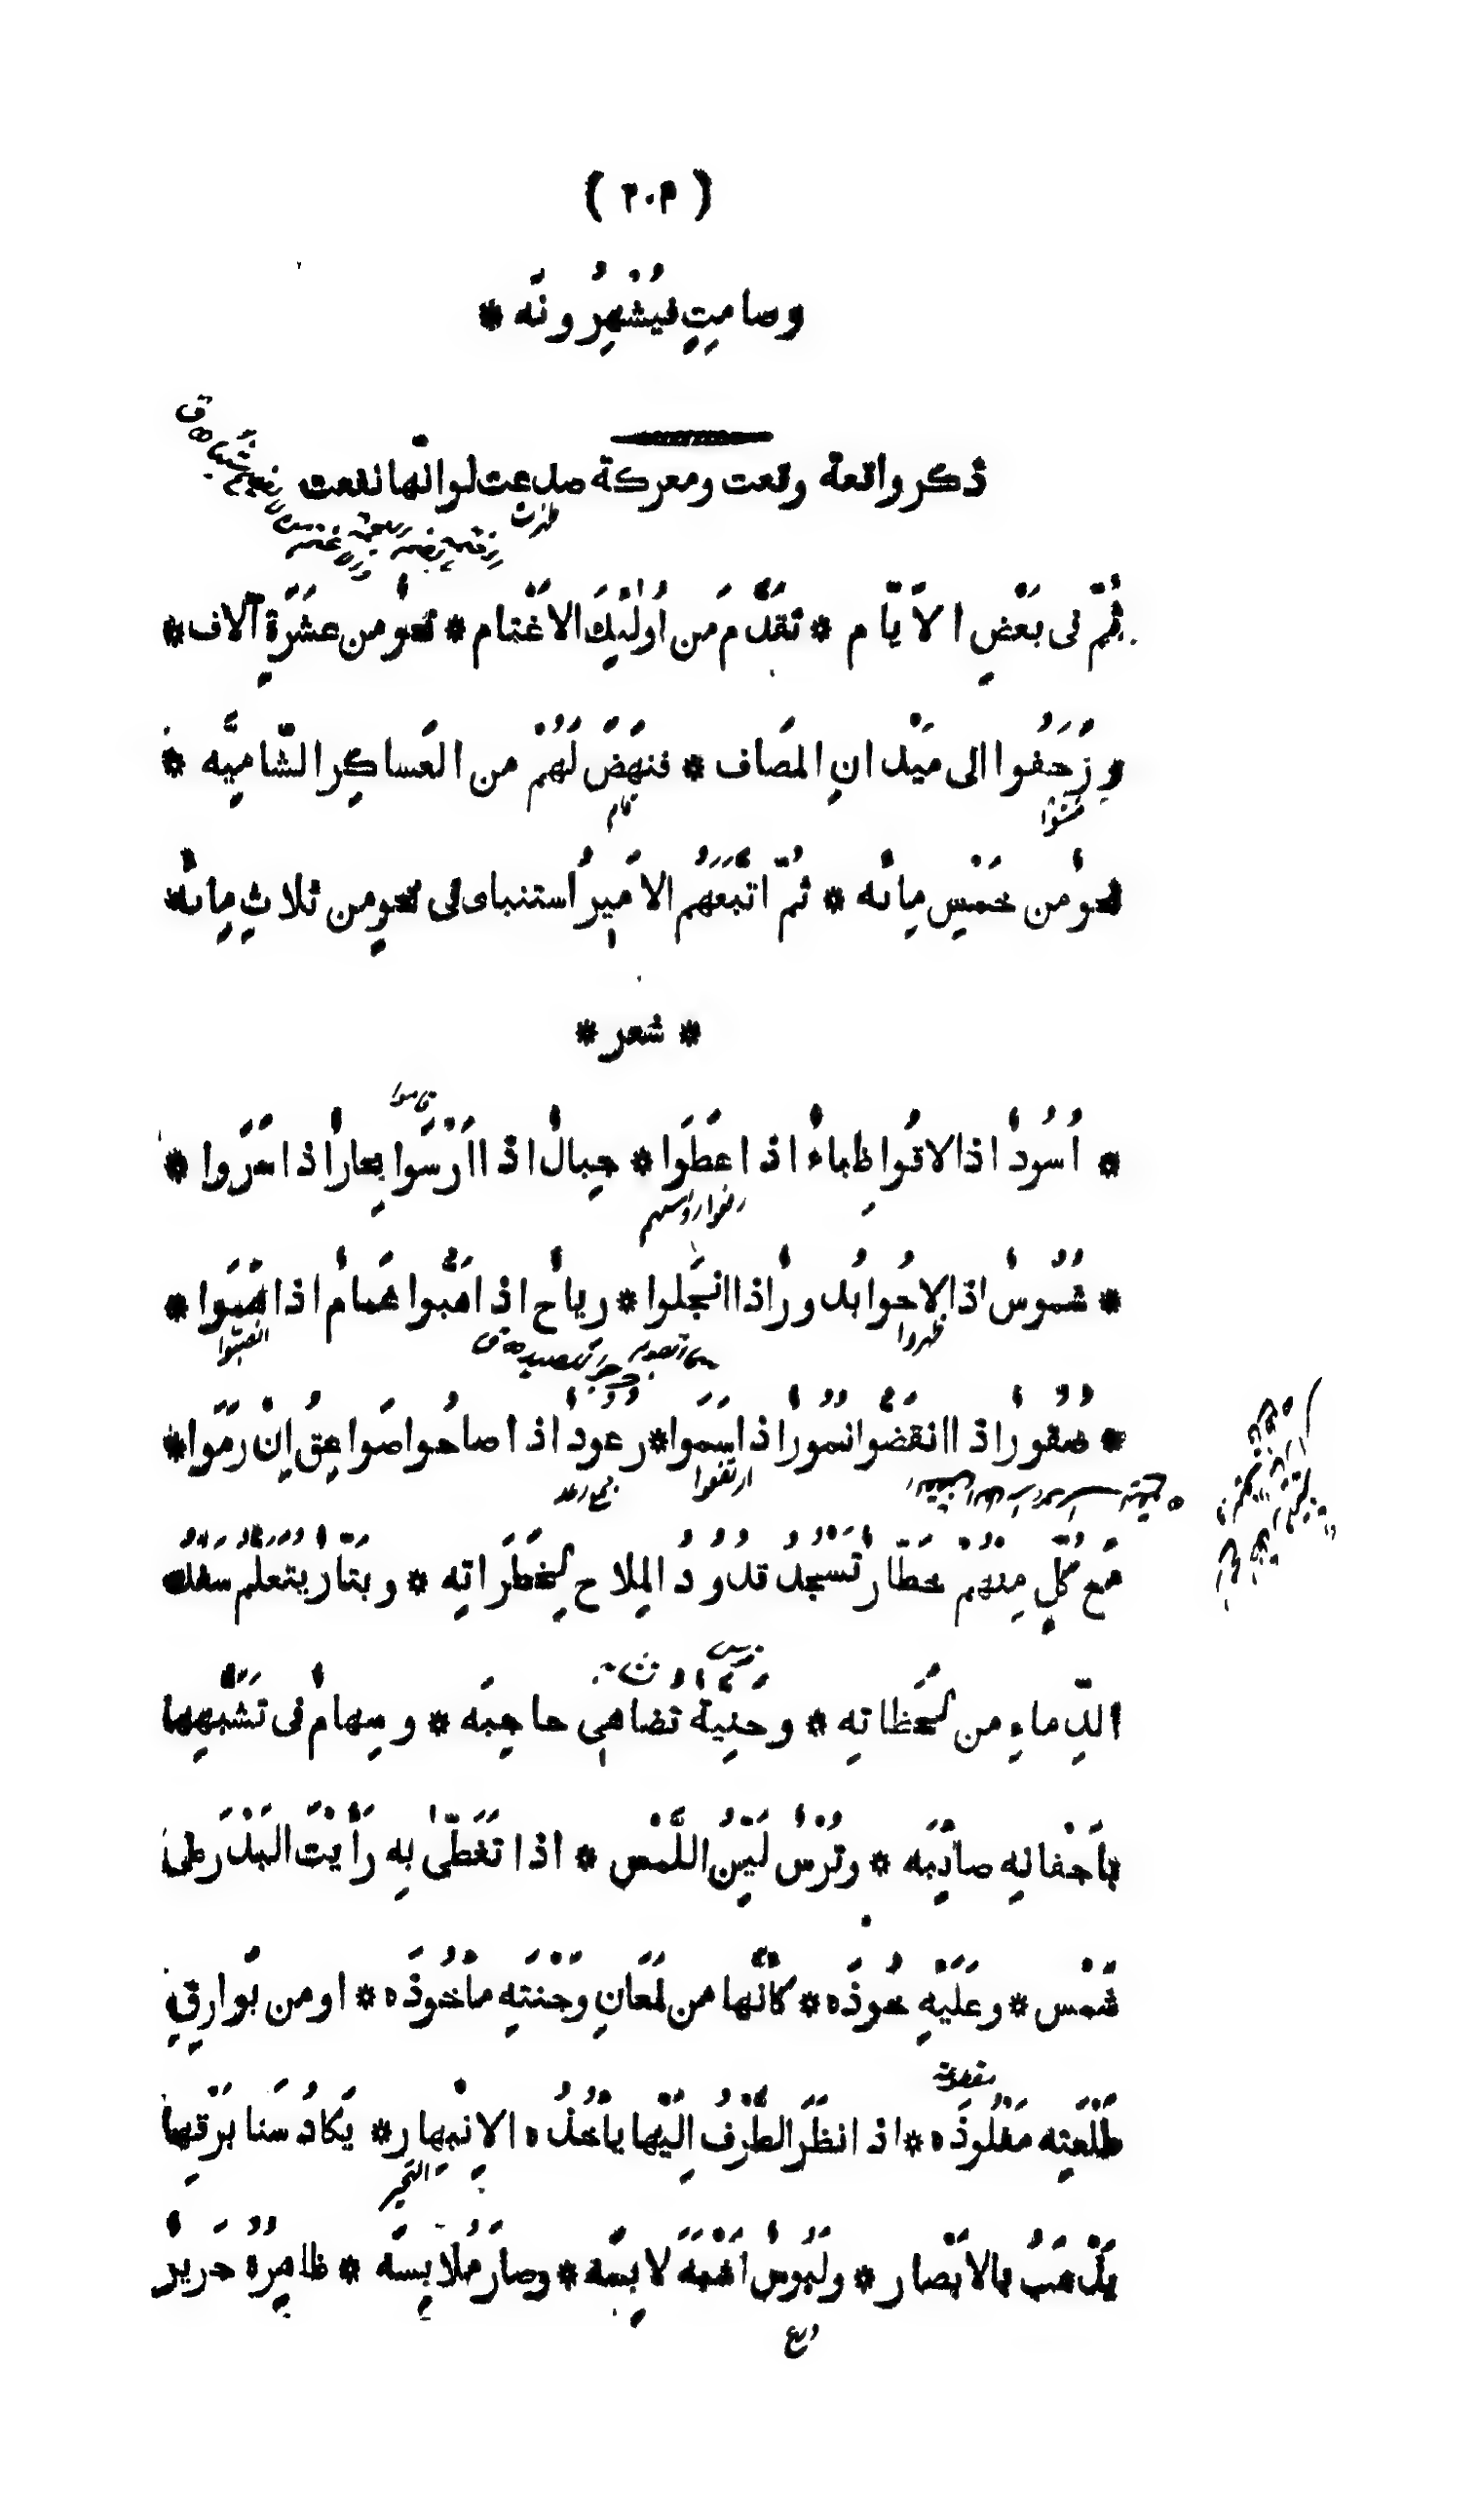 ( ٢٠٣ )
وصامِتٍ فيُشْهِرُونَه *
ذكر واقعة وقعت ومعركة صدعت لو انّها نفعت
ثُمّ فى بَعْضِ الاَيّام * تقَدَّم مَن اُولٰئِكَ الاَغْتام * نحوٌ من عشَرَةِ آلاف *
وزَحَفُوا الى مَيْدانِ المصَاف * فنهَضَ لَهُمْ من العَساكِرِ الشّاميَّه *
نحوٌ من خَمْسِ مِائه * ثُمّ اتّبَعَهُم الاَميرُ اُستنباى فى نحوٍ من ثلاثِ مِائه
* شعر *
* اُسُودٌ اذا لاقَوا ظِماءٌ اذا عطَوا * جِبالٌ اذا اَرْسَوا بِحارٌ اذا سَرَوا *
* شُمُوسٌ اذا لاحُوا بُدورٌ اذا انجَلوا * رِياحٌ اذا هَبُّوا غمامٌ اذا هَمَوا *
* صُقورٌ اذا انقَضُّوا نُمُورٌ اذا سَمَوا * رعُودٌ اذا صاحُوا صَواعِقُ اِنْ رمَوا *
مَع كُلٍّ مِنْهُمْ خَطّارٌ تَسْجُدُ قدُودُ المِلاحِ لِخَطَراتِه * وبَتّارٌ يتَعَلَّمُ سَفْكَ
الدِّماءِ من لَحَظاتِه * وحَنِيَّةٌ تُضاهِى حاجِبَه * وسِهامٌ فى تَشَبُّهِها
باَجْفانِه صائِبَه * وتُرْسٌ لَيِّنُ اللَّمْس * اذا تَغَطّىٰ بِه رَاَيْتَ البَدْرَ على
شَمْس * وعَلَيْهِ خُوذَه * كَاَنَّها من لمَعَانِ وَجْنتَهِ مَاْخُوذَه * او من بَوارِقِ
طَلْعَتِه مَفْلُوذَه * اذا نظَرَ الطَّرْفُ اِلَيْها يأخُذُه الاِنْبِهار * يَكادُ سَنا بَرْقِها
يَذْهَبُ بالاَبْصار * ولَبُوسٌ اَشْبَهَ لابِسَه * وصارَ مُلابِسَه * ظاهِرُهُ حَريرٌ
درع